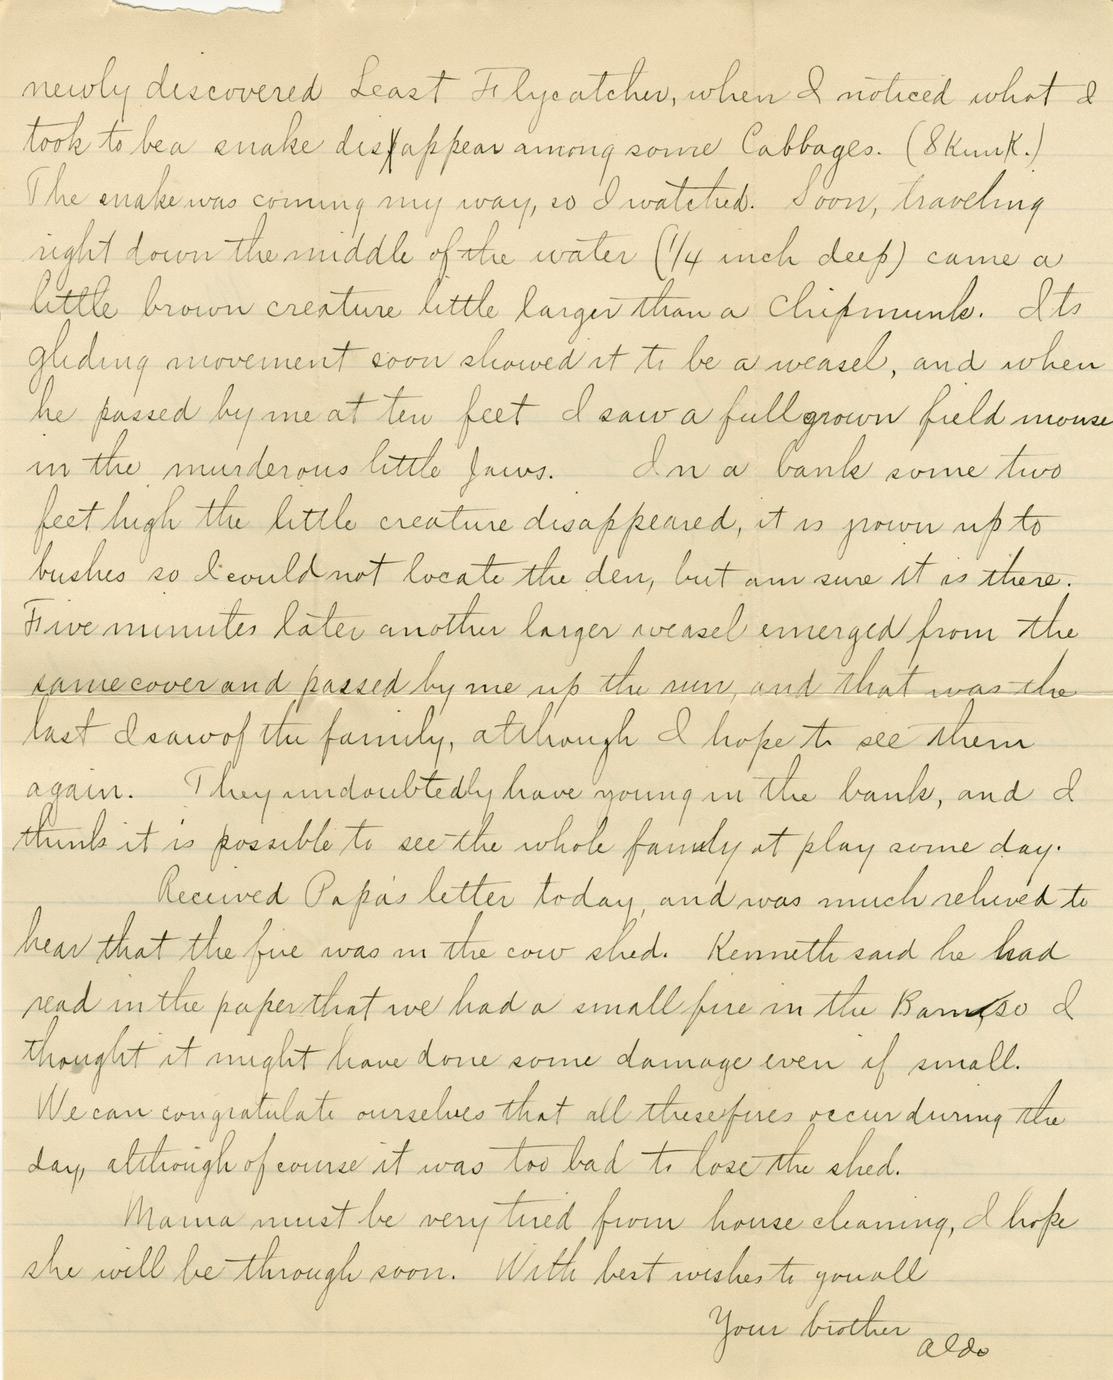 newly discovered Least Flycatcher, when I noticed what I
took to be a snake disappear among some Cabbages. (Skunk.)
The snake was coming my way, so I watched. Soon, traveling
right down the middle of the water (1/4 inch deep) came a
little brown creature little larger than a Chipmunk. Its
gliding movement soon showed it to be a weasel, and when
he passed by me at ten feet I saw a full grown field mouse
in the murderous little Jaws. In a bank some two
feet high the little creature disappeared, it is grown up to
bushes so I could not locate the den, but am sure it is there.
Five minutes later another larger weasel emerged from the
same cover and passed by me up the run, and that was the
last I saw of the family, although I hope to see them
again. They undoubtedly have young in the bank, and I
think it is possible to see the whole family at play some day.
Received Papa's letter today, and was much relieved to
hear that the fire was in the cow shed. Kenneth said he had
read in the paper that we had a small fire in the Barn, so I
thought it might have done some damage even if small.
We can congratulate ourselves that all these fires occur during the
day, although of course it was too bad to lose the shed.
Mama must be very tired from house cleaning, I hope
she will be through soon. With best wishes to you all
Your brother
Aldo